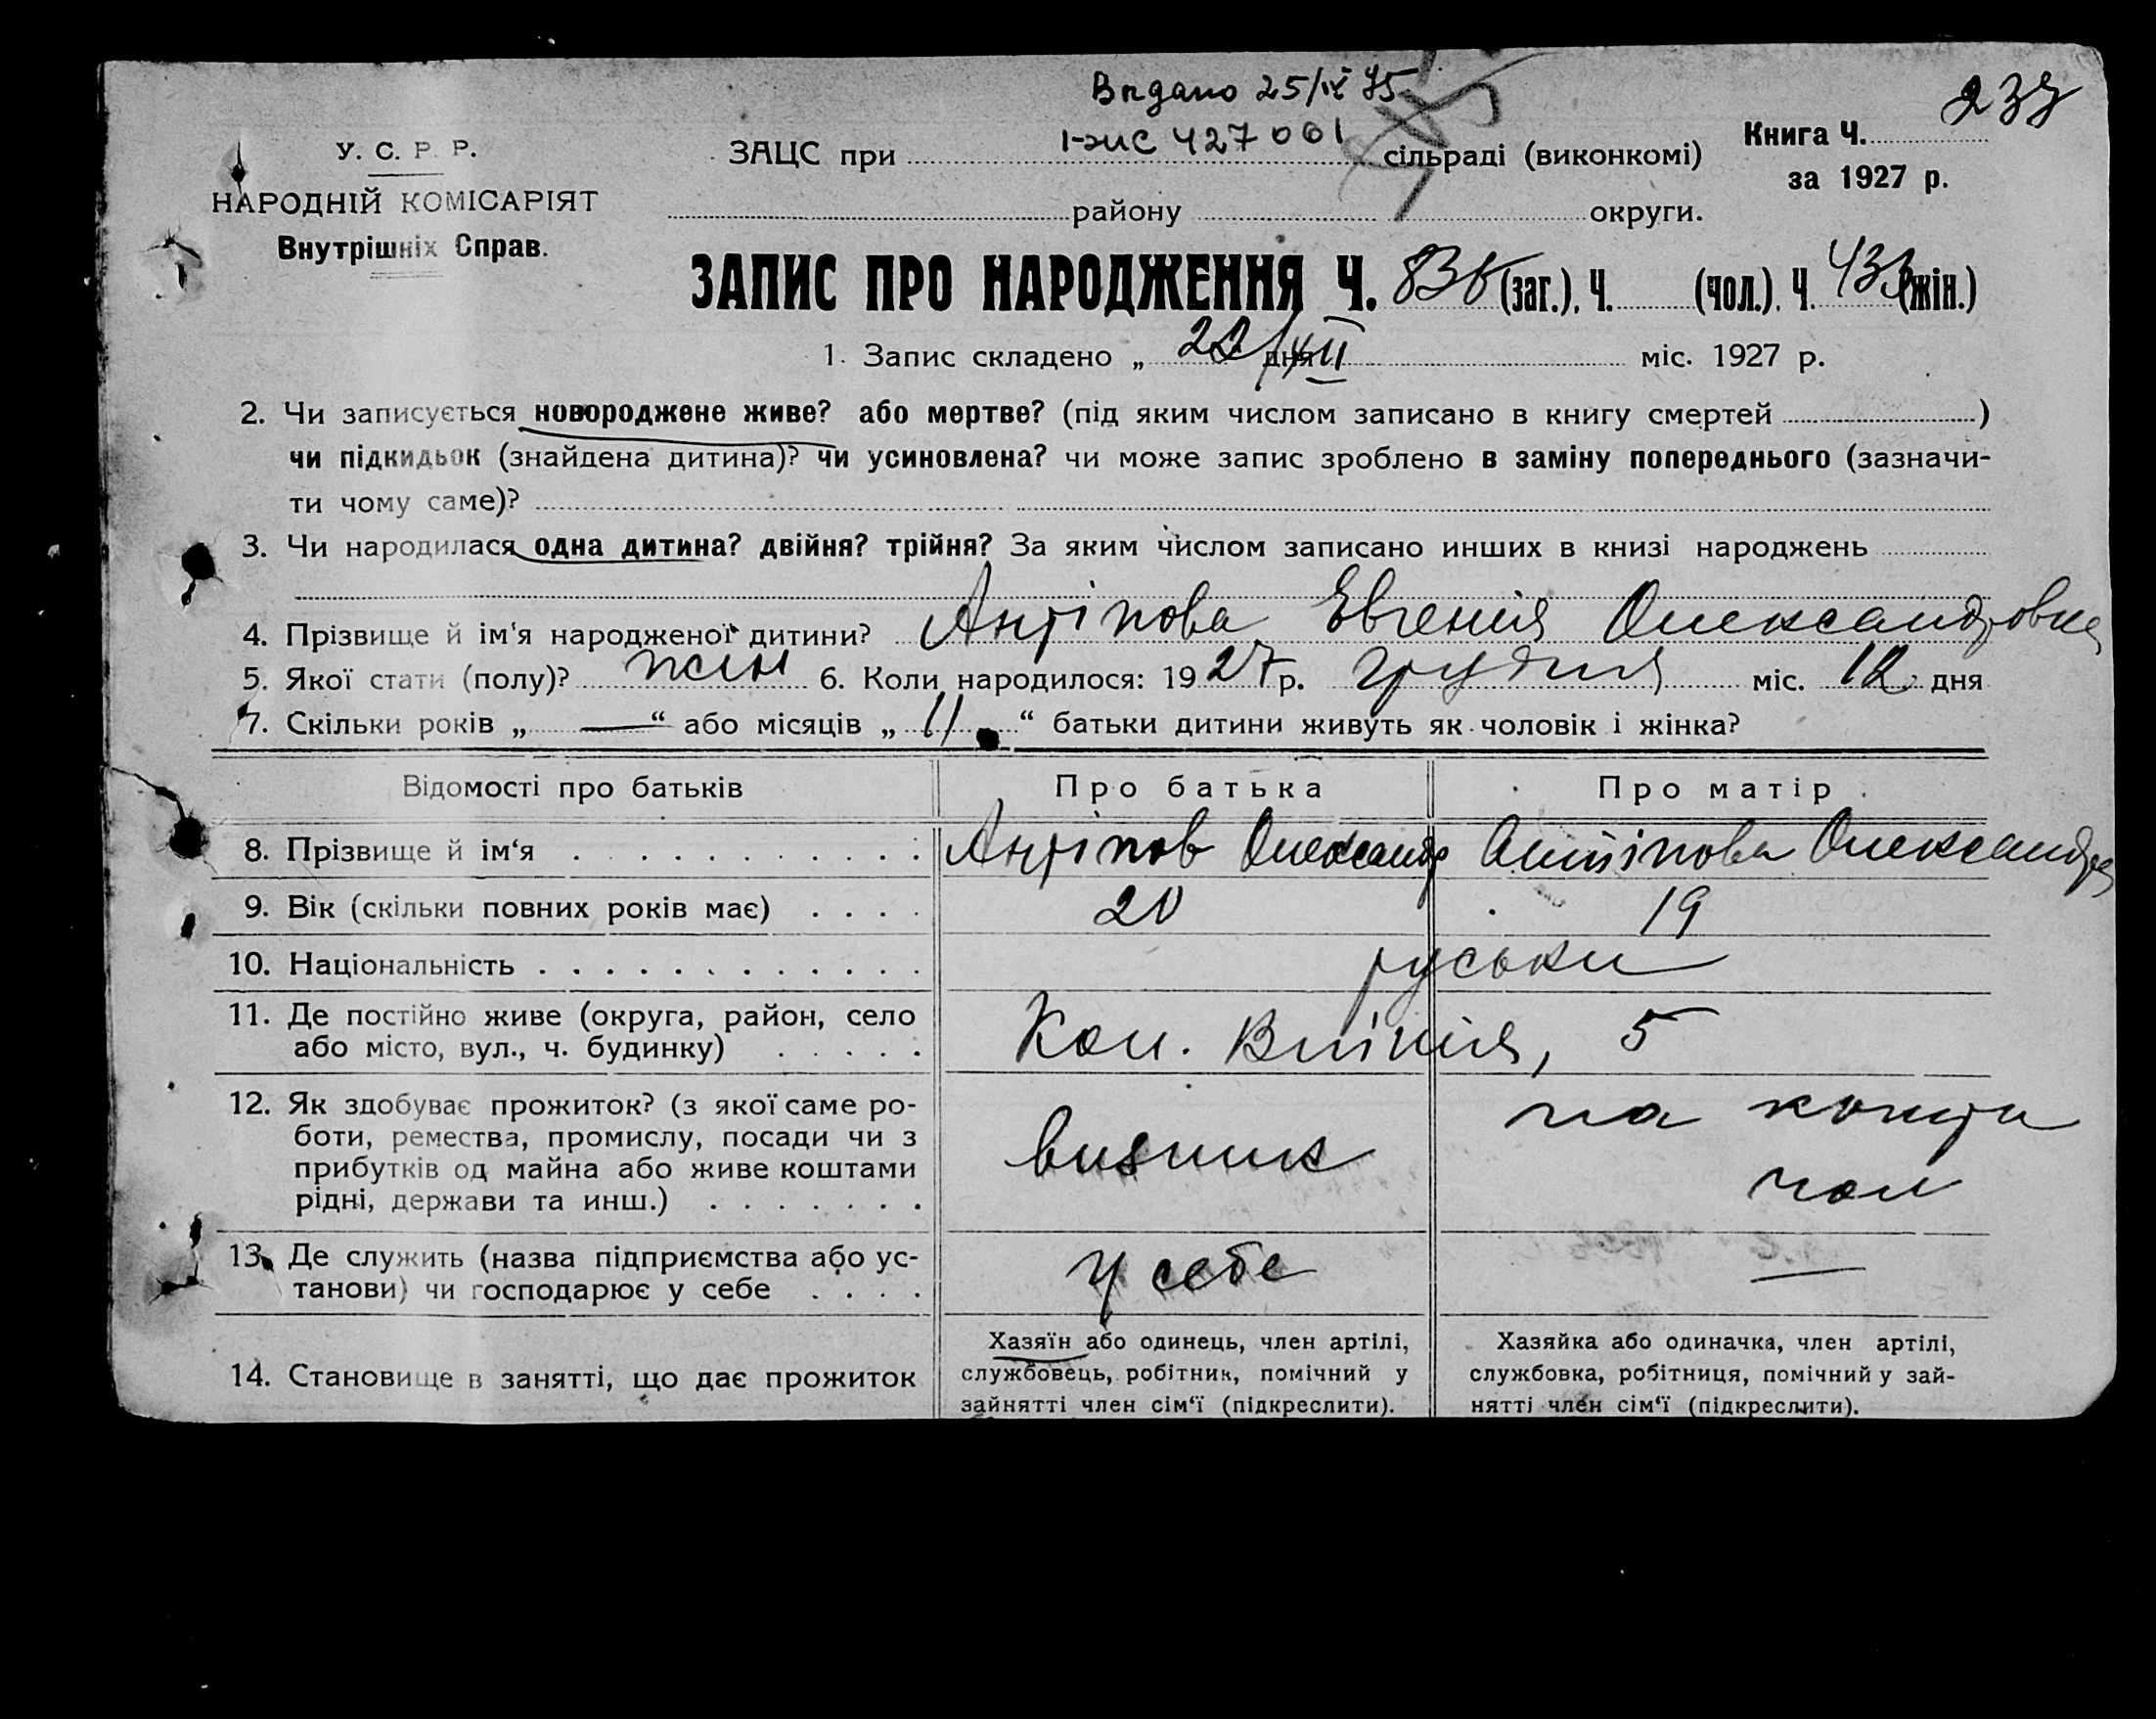 Видано 25/IX 75
237
У. С. Р. Р.
ЗАЦС при I-жс 427001 сільраді (виконкомі)
Книга Ч.
за 1927 р.
НАРОДНІЙ КОМІСАРІЯТ
району округи.
Внутрішніх Справ.
ЗАПИС ПРО НАРОДЖЕННЯ Ч. 836 (заг.), Ч. (чол.), Ч. 433 (жін.)
1. Запис складено „ 22/XII дня міс. 1927 р.
2. Чи записується новороджене живе? або мертве? (під яким числом записано в книгу смертей )
чи підкидьок (знайдена дитина)? чи усиновлена? чи може запис зроблено в заміну попереднього (зазначи-
ти чому саме)?
3. Чи народилася одна дитина? двійня? трійня? За яким числом записано инших в книзі народжень
4. Прізвище й ім‘я народженої дитини? Антіпова Евгенія Олександровна
5. Якої стати (полу)? жін 6. Коли народилося: 1927 р. грудня міс. 12 дня
7. Скільки років „ — “ або місяців „ 11 “ батьки дитини живуть як чоловік і жінка?
Відомості про батьків Про батька Про матір
8. Прізвище й ім‘я Антіпов Олександр Антіпова Олександра
9. Вік (скільки повних років має) 20 19
10. Національність руськи
11. Де постійно живе (округа, район, село
або місто, вул., ч. будинку) 5
12. Як здобуває прожиток? (з якої саме ро-
боти, ремества, промислу, посади чи з
прибутків од майна або живе коштами
рідні, держави та инш.)
визник
на кошти
чол
13. Де служить (назва підприємства або ус-
танови) чи господарює у себе
у себе —
14. Становище в занятті, що дає прожиток
Хазяїн або одинець, член артілі,
службовець, робітник, помічний у
зайнятті член сім‘ї (підкреслити).
Хазяйка або одиначка, член артілі,
службовка, робітниця, помічний у зай-
нятті член сім‘ї (підкреслити).